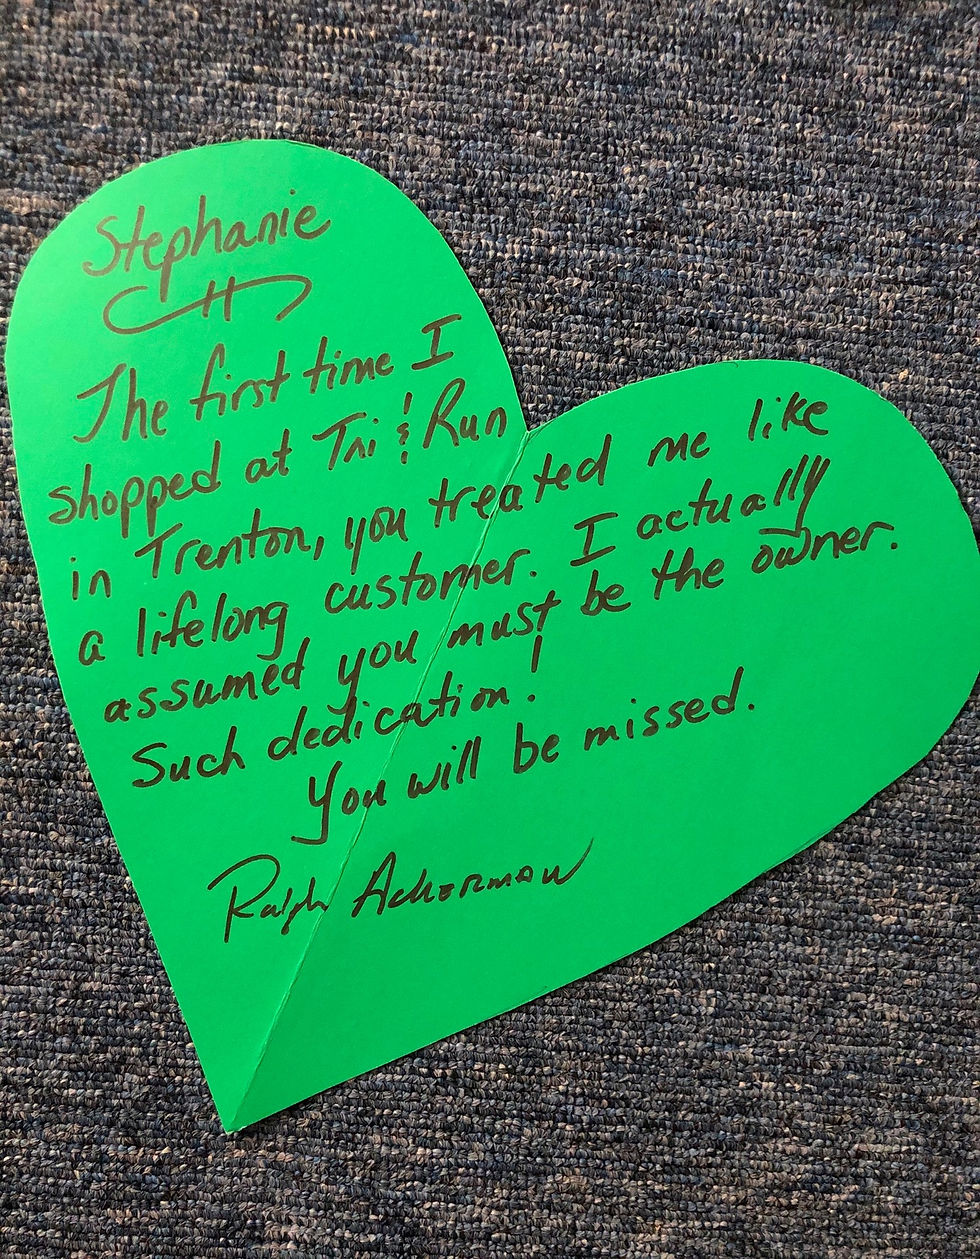 Stephanie
The first time I
shopped at Tri & Run
in Trenton, you treated me like
a lifelong customer. I actually
assumed you must be the owner.
Such dedication!
You will be missed.
Ralph Ackerman